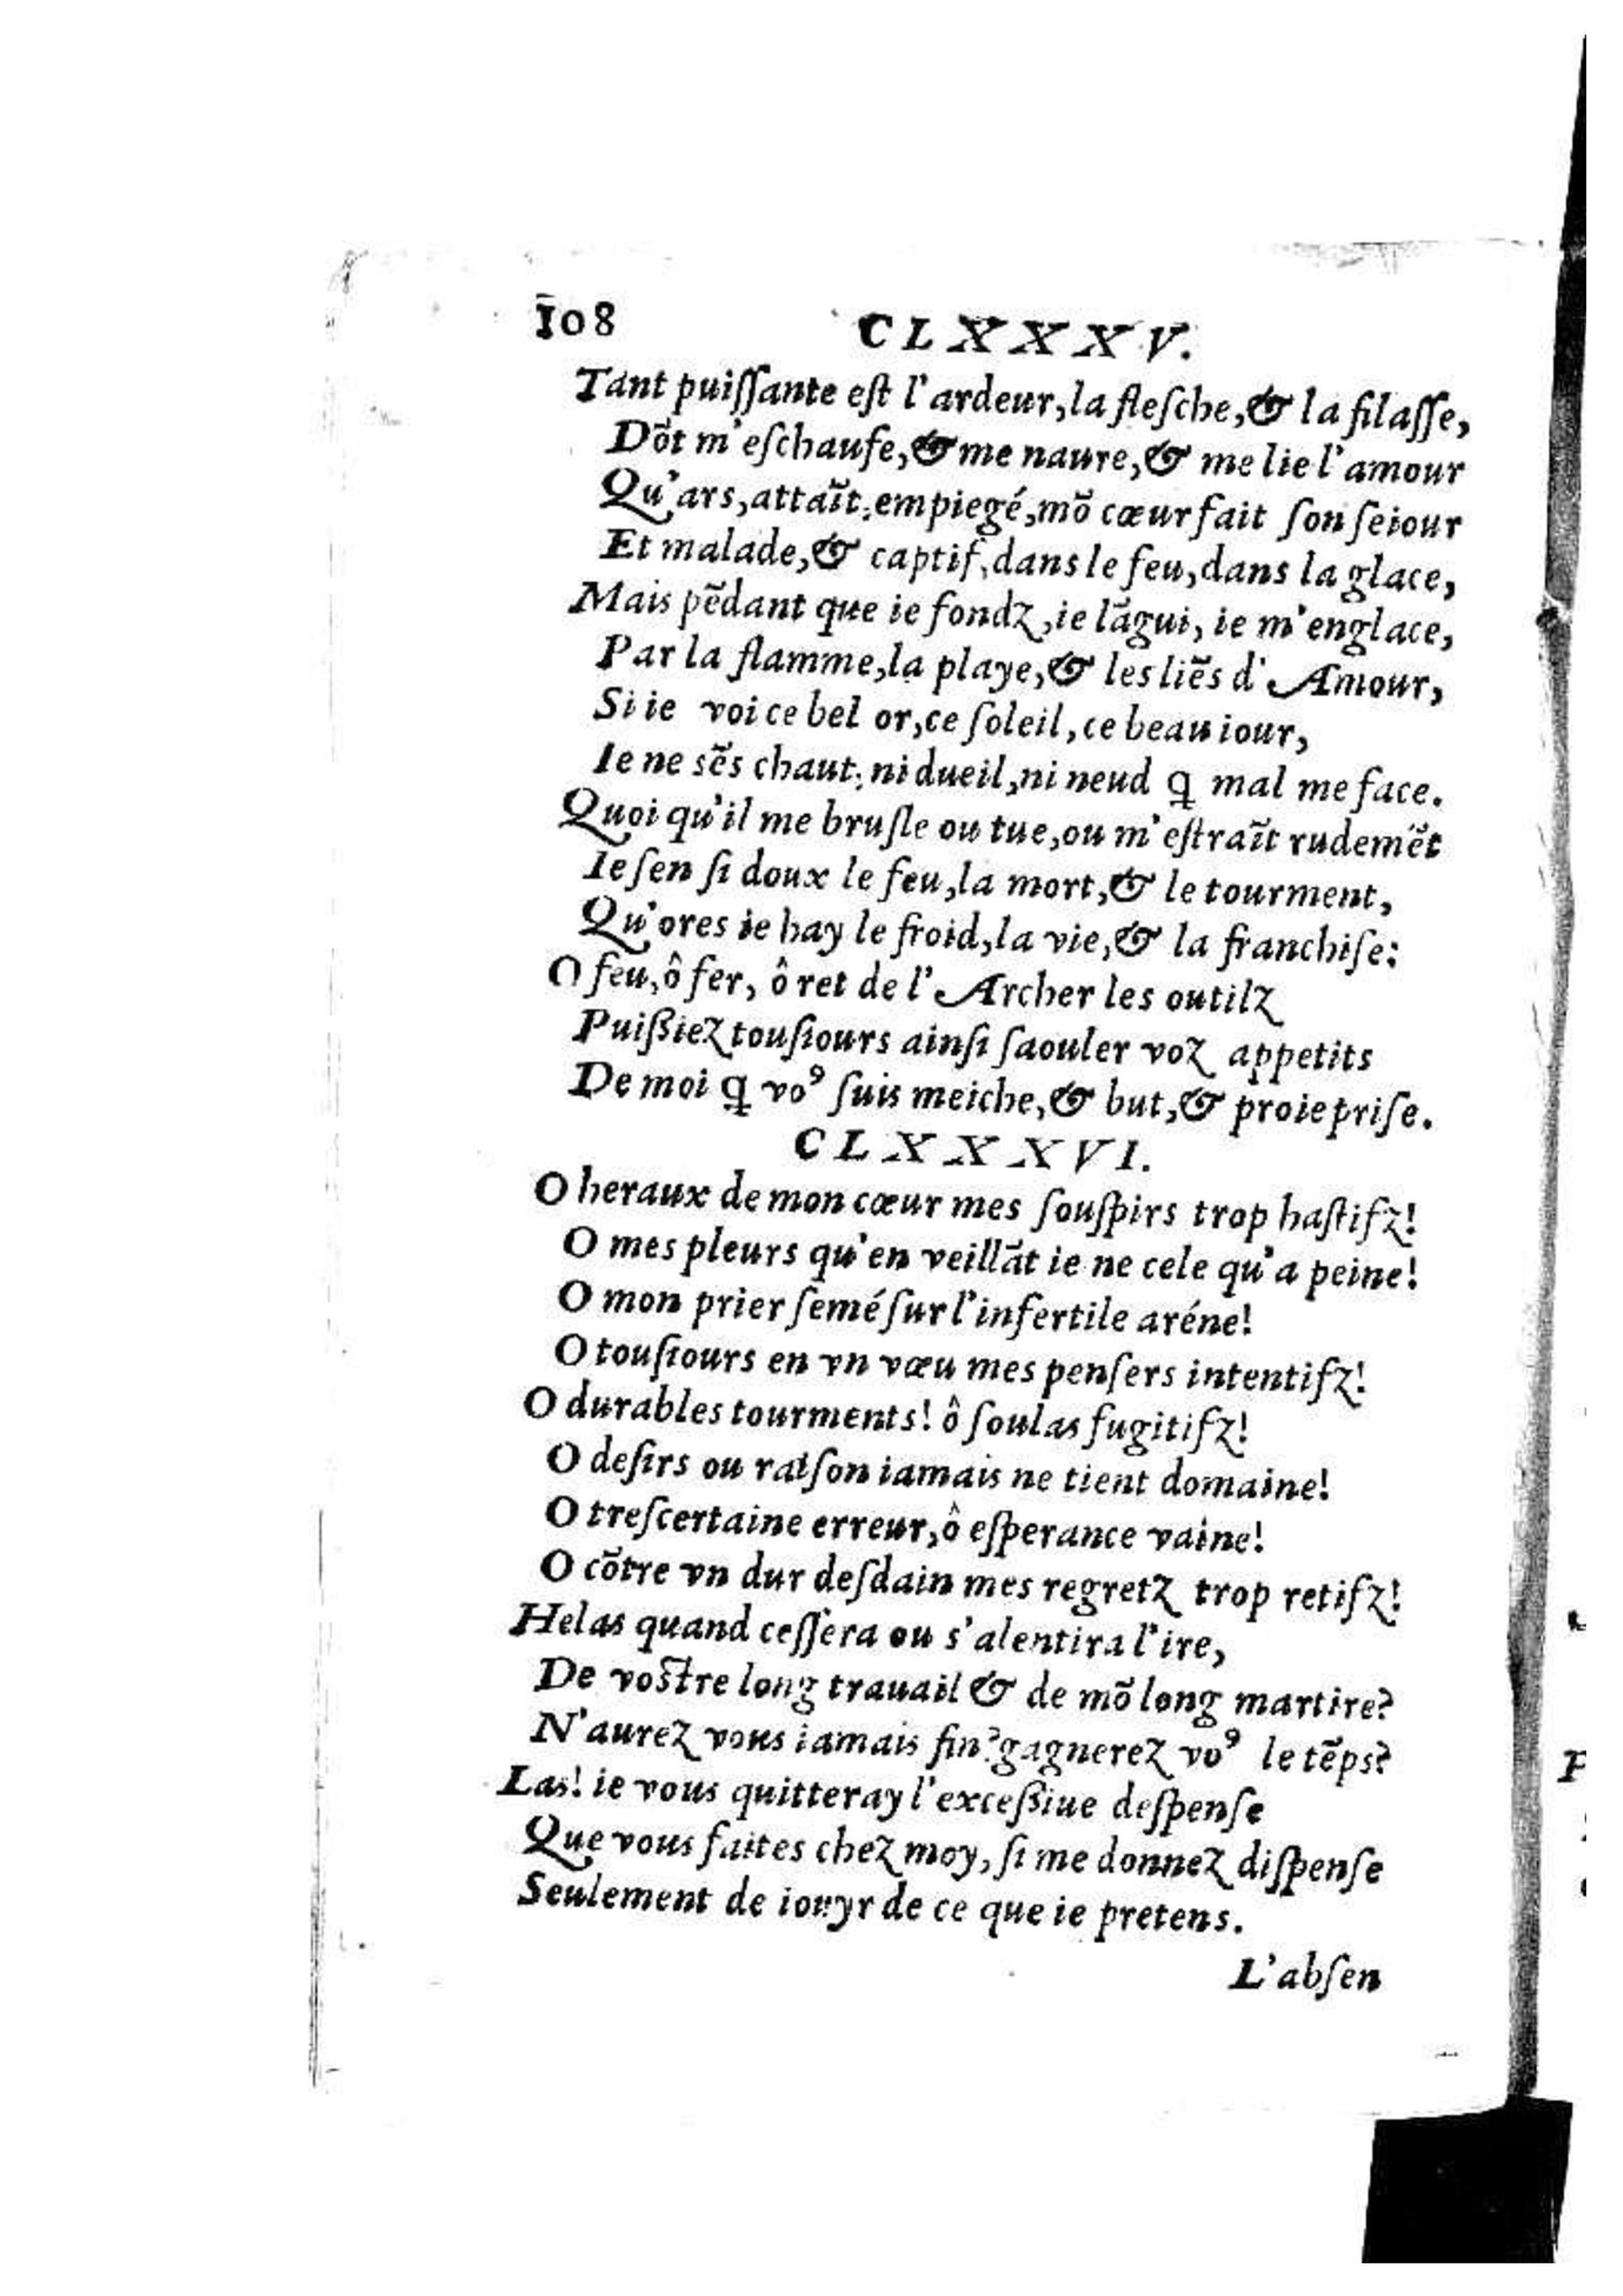 108 CLXXXV.
Tant puiſſante eſt l'ardeur,la fleſche,& la filaſſe,
Dõt m'eſchaufe,& me naure,& me lie l'amour
Qu'ars,attaĩt,empiegé,mõ cœur fait ſon ſeiour
Et malade,& captif,dans le feu,dans la glace,
Mais pẽdant que ie fondz,ie lãgui, ie m'englace,
Par la flamme,la playe,& les liẽs d'Amour,
Si ie voi ce bel or,ce ſoleil,ce beau iour,
Ie ne sẽs chaut, ni dueil,ni neud q̃ mal me face.
Quoi qu'il me bruſle ou tue,ou m'eſtraĩt rudemẽt
Ie ſen ſi doux le feu,la mort,& le tourment,
Qu'ores ie hay le froid,la vie,& la franchiſe:
O feu,ô fer, ô ret de l'Archer les outilz
Puißiez touſiours ainſi ſaouler voz appetits
De moi q vo⁹ ſuis meiche,& but,& proie priſe.
CLXXXVI.
O heraux de mon cœur mes ſouſpirs trop haſtifz!
O mes pleurs qu'en veillãt ie ne cele qu'a peine!
O mon prier ſemé ſur l'infertile aréne!
O touſiours en vn vœu mes penſers intentifz!
O durables tourments! ô ſoulas fugitifz!
O deſirs ou raiſon iamais ne tient domaine!
O treſcertaine erreur,ô eſperance vaine!
O cõtre vn dur deſdain mes regretz trop retifz!
Helas quand ceſſera ou s'alentira l'ire,
De voſtre long trauail & de mõ long martire?
N'aurez vous iamais fin?gagnerez vo⁹ le tẽps?
Las! ie vous quitteray l'exceßiue deſpenſe
Que vous faites chez moy, ſi me donnez diſpenſe
Seulement de iouyr de ce que ie pretens.
L'abſen